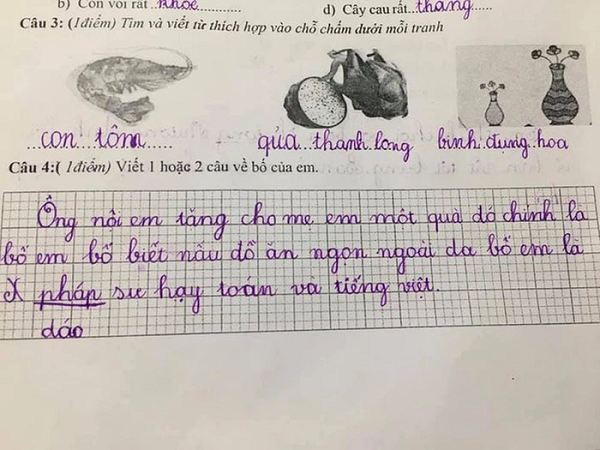 b) Con voi rất..khoẻ............
d) Cây cau rất...thẳng......
Câu 3: (1điểm) Tìm và viết từ thích hợp vào chỗ chấm dưới mỗi tranh
...con...tôm......
qủa...thanh.long
bình.đựng.hoa
Câu 4:( 1điểm) Viết 1 hoặc 2 câu về bố của em.
Ông nội em tặng cho mẹ em một quà đó chính là
bố em bố biết nâu đồ ăn ngon ngoài da bố em là
pháp sư hay toán và tiếng việt.
dáo